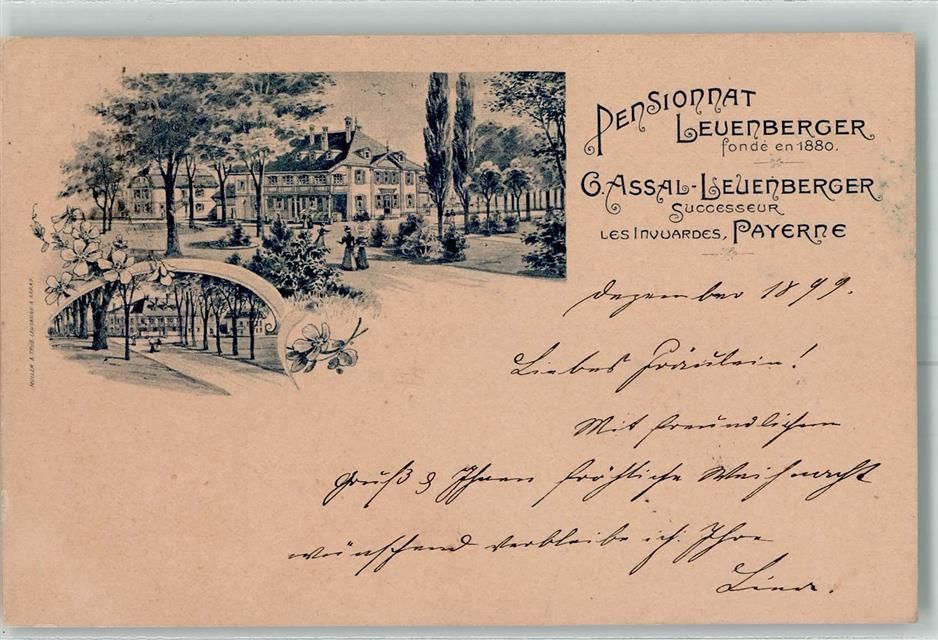 Pensionnat
Leuenberger
fondé en 1880.
G. Assal-Leuenberger
Successeur
Les Invuardes, Payerne
Dezember 1899.
Liebes Fräulein!
Mit freundlichem
Gruß & Ihnen fröhliche Weihnacht
wünschend verbleibe ich Ihre